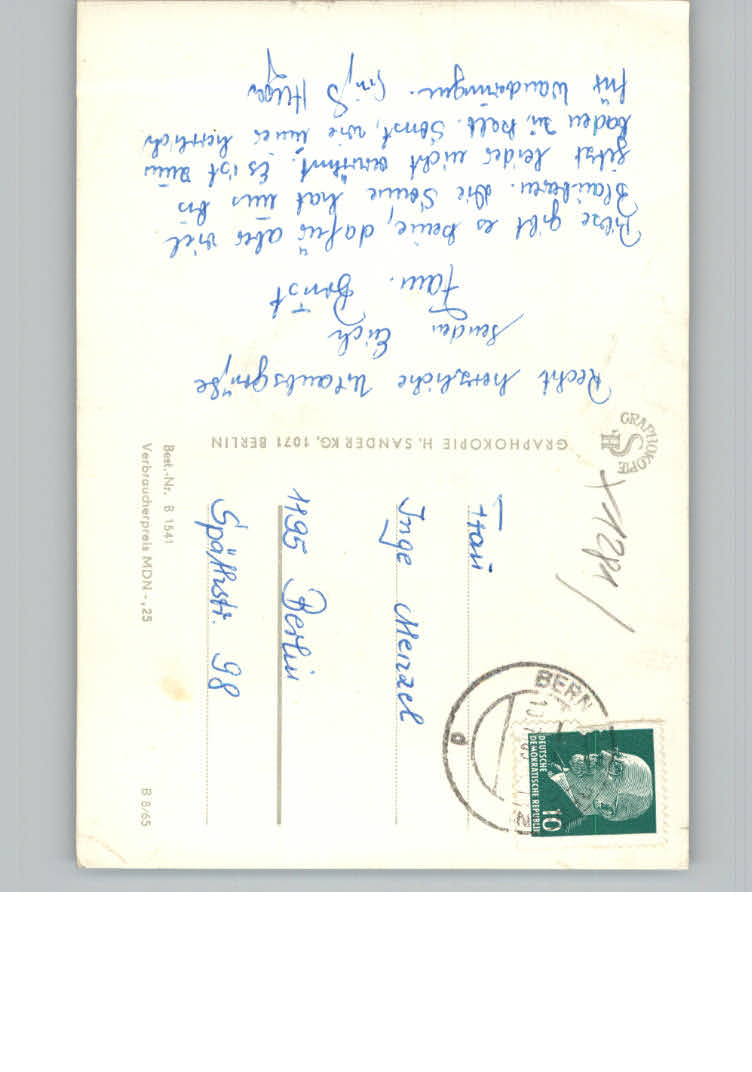 Recht herzliche Urlaubsgrüße
senden Euch
Fam. Bonst
Pilze gibt es keine, dafür aber viel
Blaubeeren. Die Sonne hat uns bis
jetzt leider nicht verwöhnt. Es ist zum
baden zu kalt. Sonst, wie immer herrlich
für Wanderungen.
GRAPHOKOPIE H. SANDER KG, 1071 BERLIN
GRAPHOKOPIE
HS
Frau
Inge Menzel
1195 Berlin
Späthstr. 98
Best.-Nr. B 1541
Verbraucherpreis MDN -,25
B 8/65
BERN
DEUTSCHE
DEMOKRATISCHE REPUBLIK
10